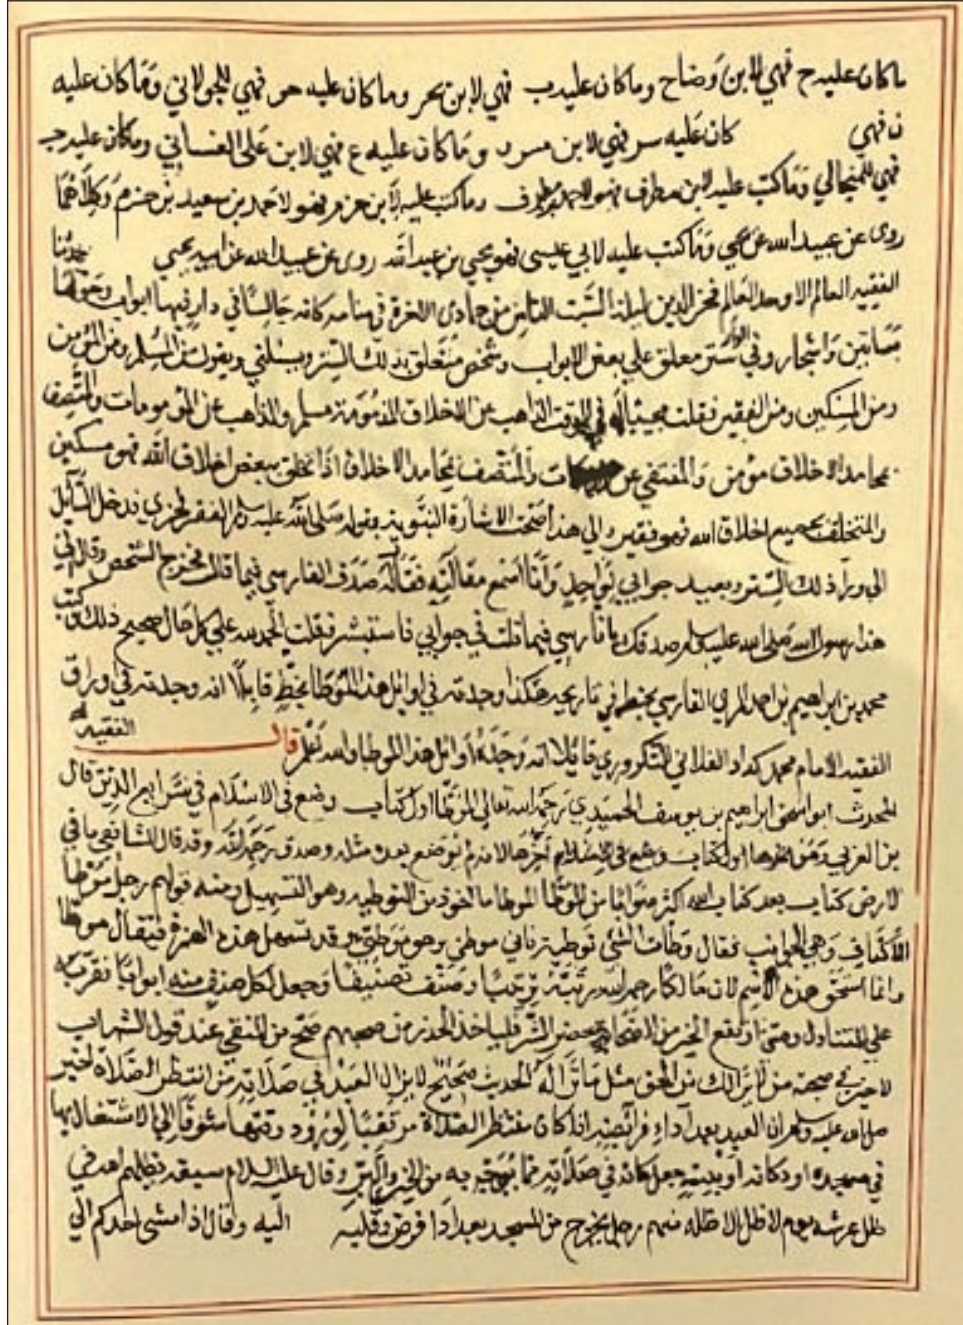 ما كان عليه ح فهي لابن وضاح وما كان عليه ب فهي لابن بحر وما كان عليه هر فهي للجولاني وما كان عليه
ن فهي كان عليه سر فهي لابن مسرد وما كان عليه ع فهي لابن علي الغساني وما كان عليه جـ
فهي للمنجالي وما كتب عليه لابن مطرف فهو لاحمد بن مطرف وما كتب عليه لابن حزم فهو لاحمد بن سعيد بن حزم وكلاهما
روى عن عبيد الله عن يحيى وما كتب عليه لابي عيسى فهو يحيى بن عبد الله روى عن عبيد الله عن ابيه يحيى حدثنا
الفقيه العالم الاوحد العالم فخر الدين ليلة السبت الثامن من جمادى الاخرة في منامه كانه جالسا في دار فيها ابواب وحولها
بساتين واشجار وفي الدار ستر معلق على بعض الابواب وشخص متعلق بذلك الستر ويسئلني ويقول من المسلم ومن المؤمن
ومن المسكين ومن الفقير فقلت مجيبا له في الوقت الذاهب عن الاخلاق المذمومة مسلم والذاهب عن المذمومات والمتصف
بمحامد الاخلاق مؤمن والمتصف بمحامد الاخلاق اذا تخلق ببعض اخلاق الله فهو مسكين
والمتخلق بجميع اخلاق الله فهو فقير والى هذا اضحت الاشارة النبوية بقوله صلى الله عليه وسلم الفقر فخري فدخل السائل
الى وراء ذلك الستر ويعيد جوابي لواحد وانا اسمع مقالته فقال له صدق الفارسي فيما قال فخرج الشخص وقال لي
هذا رسول الله صلى الله عليه وسلم صدقك يا فارسي فيما قلت في جوابي فاستبشر فقلت الحمد لله على كل حال صحيح ذلك وكتب
محمد بن ابراهيم بن احمد الفارسي بخطه في تاريخه هكذا وجدته في اوايل هذا الموطا بخط قايلا انه وجدته في اوراق
الفقيه الامام محمد كداد الفلاني التكروري قائلا انه وجده اوائل هذا الموطا والله اعلم قال الفقيه
المحدث ابو اسحق ابراهيم بن يوسف الحميدي رحمه الله تعالى الموطا اول كتاب وضع في الاسلام في شرايع الدين قال
بن العربي وهو اخرها اول كتاب وضع في الاسلام اخرها لانه لم يوضع بعده مثله وصدق رحمه الله وقد قال الشافعي ما في
لارض كتاب بعد كتاب الله اكثر صوابا من الموطا الموطا ماخوذ من التوطيه وهو التسهيل ومنه قولهم رجل موطا
الاكناف وهي الجوانب فقال وطات الشئ توطية فاني موطئ وهو موطئ وقد تسهل هذه الهمزة فيقال موطا
وانما استحق هذا الاسم لان مالكا رحمه الله رتبه ترتيبا وصنفه تصنيفا وجعل لكل صنف منه ابوابا فقربه
على المتناول ومتى لم تقع الخير من الاصحاب تحضر الشر فلياخذ الحذر من صحبهم صح من المنقي عند قول الشهاب
لا خير في صحبة من لا يرى لك من الحق مثل ما ترى له الحديث صحيح لا يزال العبد في صلاة من انتظر الصلاة لخبر
صلى الله عليه وسلم ان العبد بعد اداء فرائضه اذا كان منتظر الصلاة مرتقبا لورود وقتها مشوقا الى الاشتغال بها
في مسجده او دكانه او بيته جعل كانه في صلاته من الخير والبر وقال عليه السلام سبعة يظلهم الله في
ظل عرشه يوم لا ظل الا ظله منهم رجل يخرج من المسجد بعد اداء فرض وقلبه اليه وقال اذا مشى احدكم الى